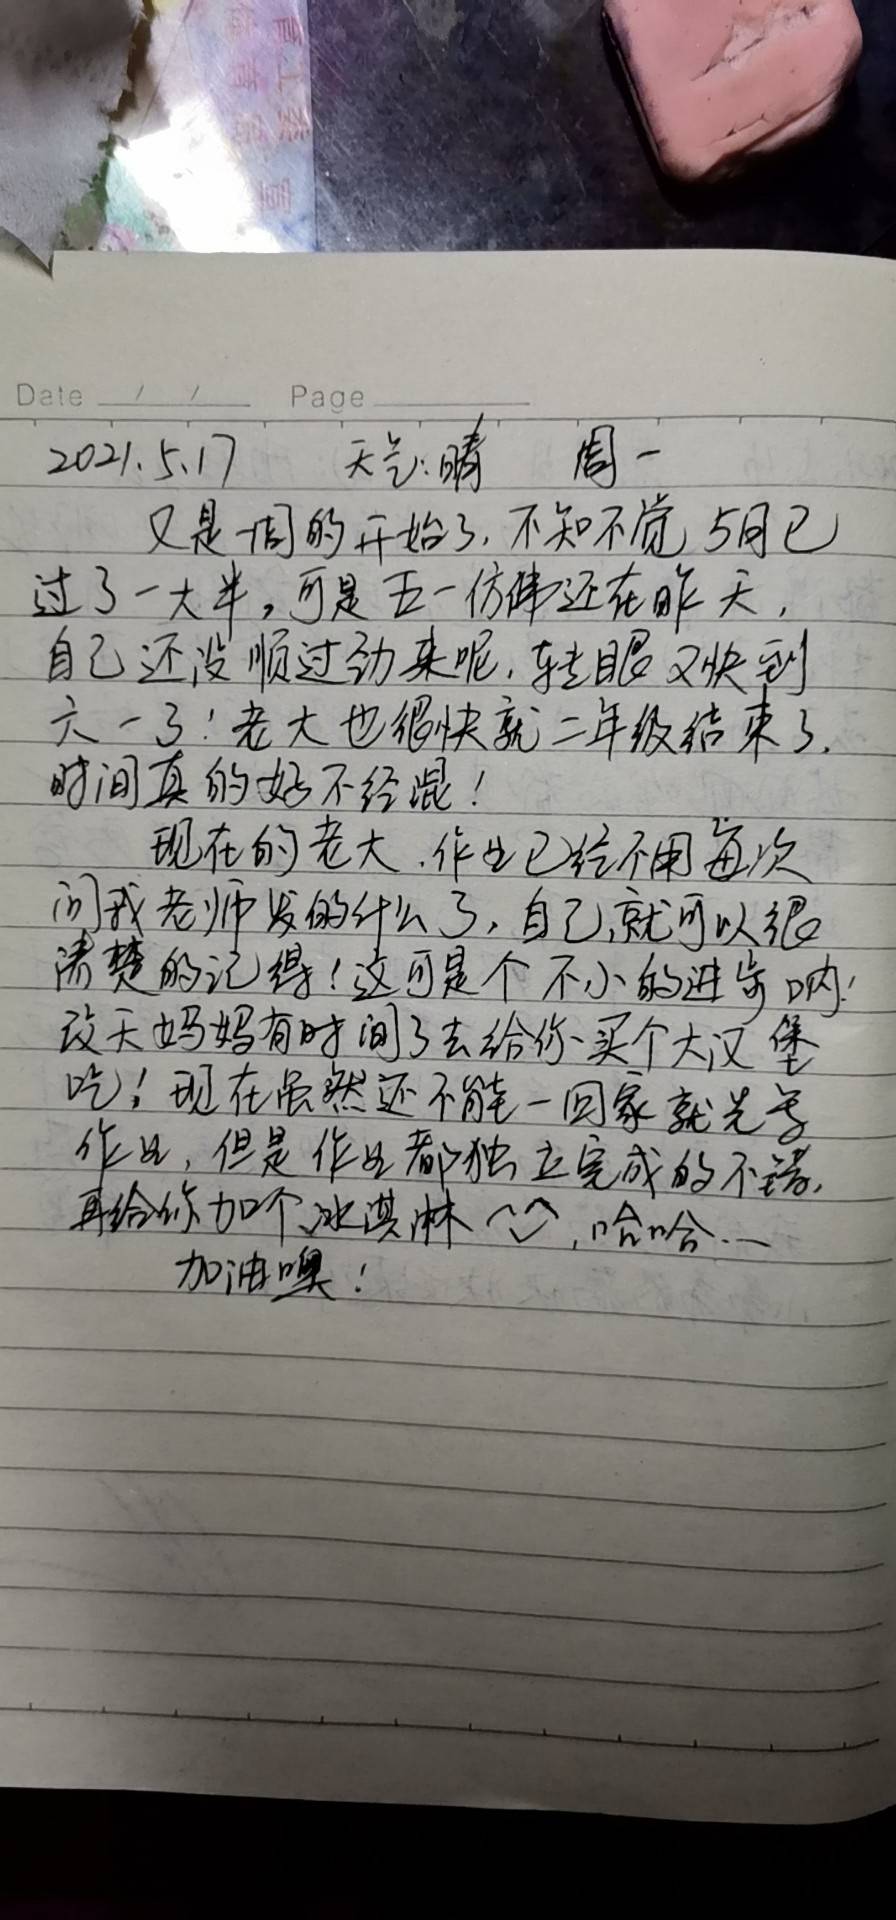 Date / / Page
2021.5.17 天气:晴 周一
又是一周的开始了,不知不觉5月已
过了一大半,可是五一仿佛还在昨天,
自己还没顺过劲来呢,转眼又快到
六一了!老大也很快就二年级结束了,
时间真的好不经混!
现在的老大,作业已经不用每次
问我老师发的什么了,自己就可以很
清楚的记得!这可是个不小的进步呐!
改天妈妈有时间了去给你买个大汉堡
吃!现在虽然还不能一回家就先写
作业,但是作业都独立完成的不错,
再给你加个冰淇淋,哈哈...
加油噢!